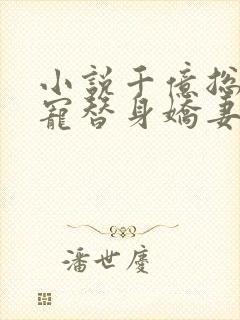 小說千億總
寵替身嬌妻
潘世慶